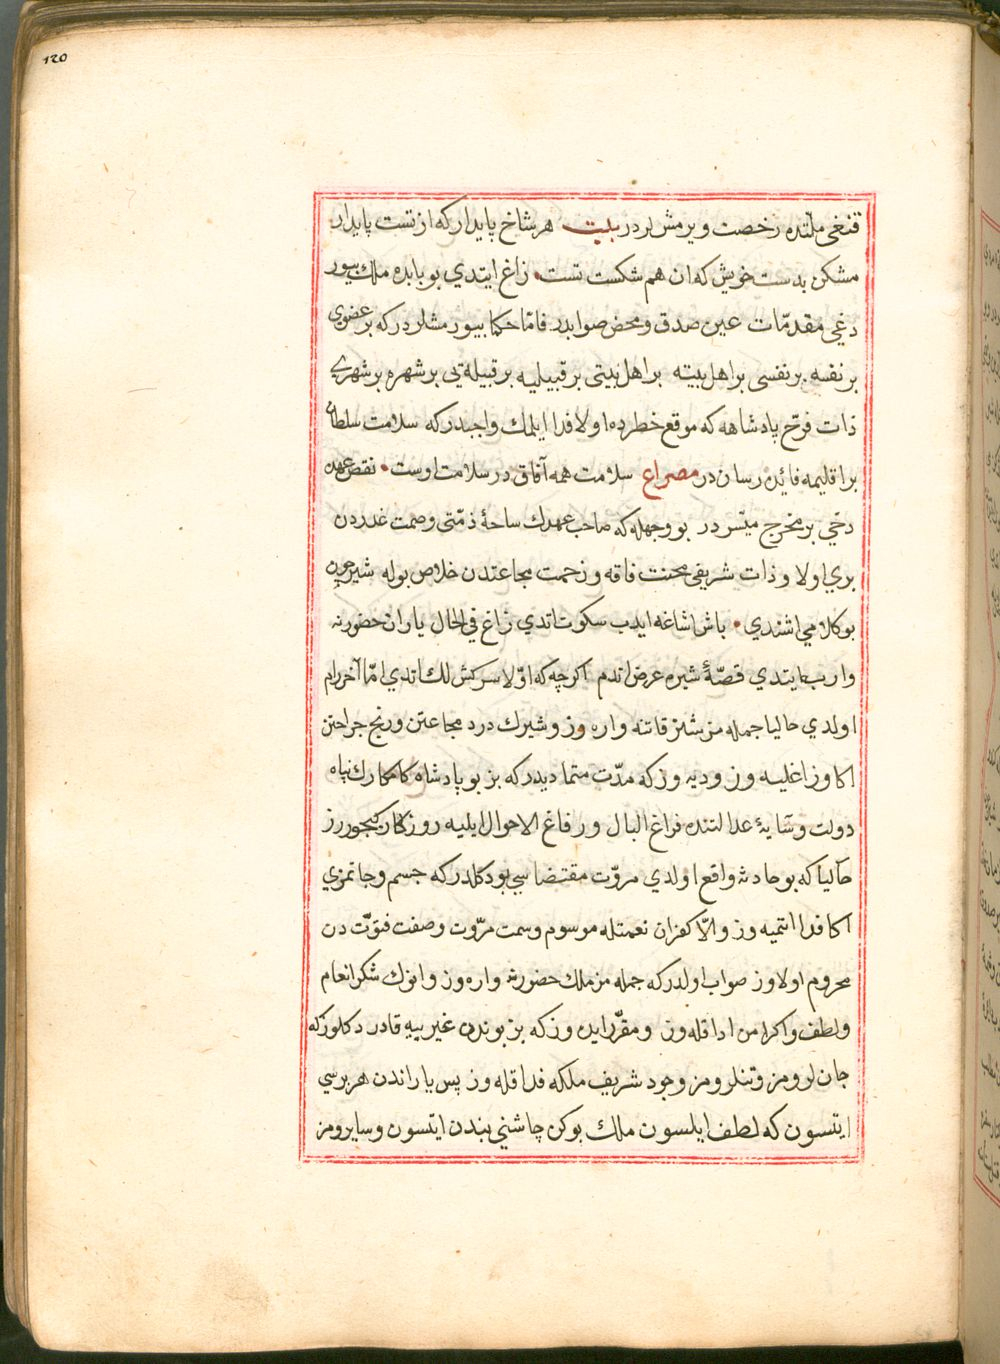 120
قنغی ملّتده رخصت ویرمشلردر بیت هر شاخ پایدار که از تست پایدار
مشکن بدست خویش که ان هم شکست تست زاغ ایتدی بو بابده ملك بیور
دغی مقدّمات عین صدق و محض صوابدر فامّا حکما بیورمشلردر که بر عضوی
بر نفسه بر نفسی بر اهل بیته بر اهل بیتی بر قبیلیه بر قبیله یی بر شهره بر شهری
ذات فرّخ پادشاهه که موقع خطرده اولا فدا ایلمك واجبدر که سلامت سلطان
بر اقلیمه فائده رساندر مصراع سلامت همه آفاق در سلامت اوست نقض عهده
دخی بر مخرج میسّردر بو وجهله که صاحب عهدك ساحۀ ذمّتی وصمت غدردن
بری اولا و ذات شریفی محنت فاقه و زحمت مجاعتدن خلاص بوله شیر چون
بو کلامی اشتدی باش اشاغه ایدب سکوت اتدی زاغ فی الحال یاران حضورنه
وارب ایتدی قصّۀ شیره عرض اتدم اکرچه که اوّلا سرکش لك اتدی امّا آخر رام
اولدی حالیا جمله مز شیز قاتنه واره وز و شیرك درد مجاعتن و رنج جراحتن
اکا وزاغلیه وز و دیه وز که مدّت متمادیدر که بز بو پادشاه کامکارك پناه
دولت و سایۀ عدالتنده فراغ البال و رفاغ الاحوال ایلیه روزکار کچورز
حالیا که بو حادثه واقع اولدی مروّت مقتضاسی بودکلدر که جسم و جانمزی
اکا فدا اتمیه وز و الّا کفران نعمتله موسوم و سمت مروّت و صفت فتوّت دن
محروم اولاوز صواب اولدر که جمله مز ملك حضورنه واره وز و انوك شکر انعام
و لطف و اکرامن ادا قله وز و مقرّر ایده وز که بز بوندن غیر ییه قادر دکلوز که
جان لرومز و تنلرومز وجود شریف ملکه فدا قله وز پس یاراندن هر بریسی
ایتسون که لطف ایلسون ملك بوکن چاشنی بندن ایتسون و سایرومز